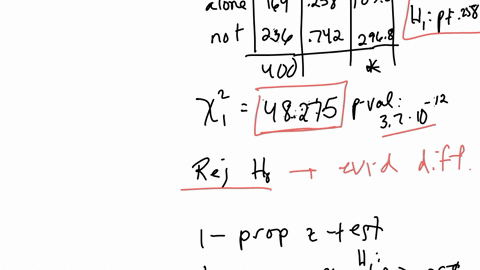 alone 164 .258
H₁: p≠.258
not 236 .742 296.8
400 *
χ²₁ = 48.275 p-val: 3.7·10⁻¹²
Rej H₀ → evid diff.
1-prop z-test
H₁: